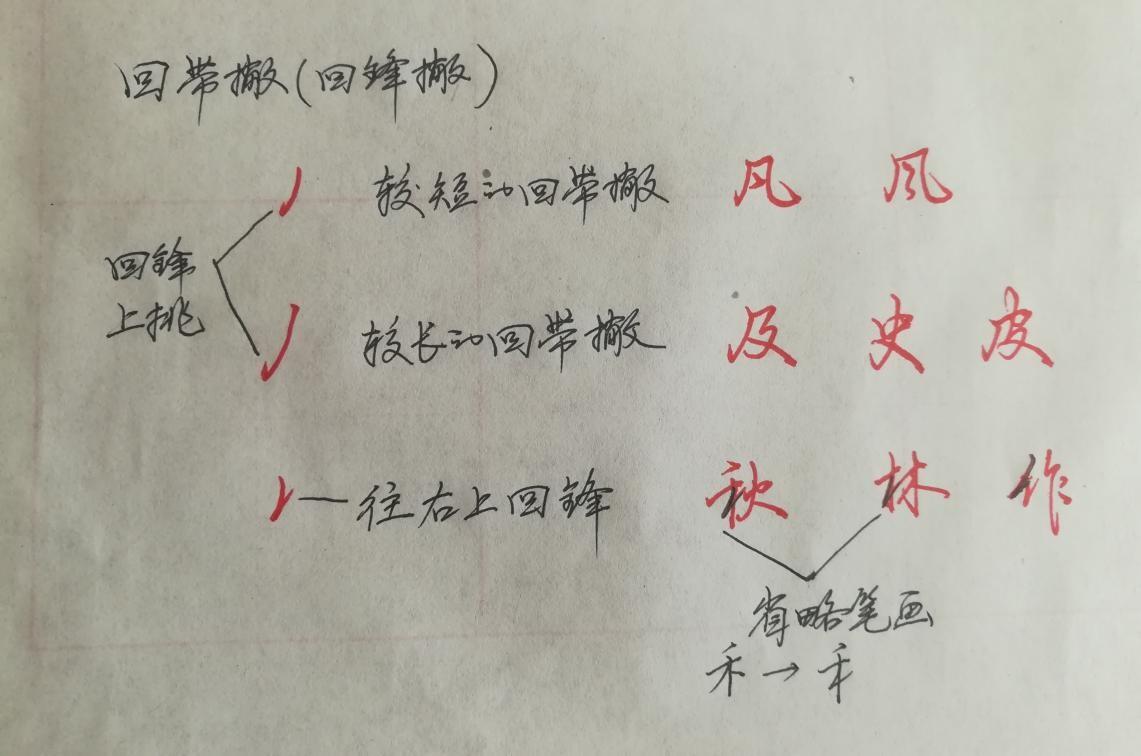 回带撇(回锋撇)
较短的回带撇 凡 风
回锋
上挑
较长的回带撇 及 史 皮
一往右上回锋 秋 林 作
省略笔画
禾→千